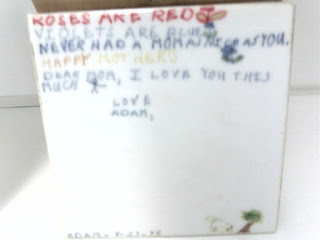 ROSES ARE RED
VIOLETS ARE BLUE
NEVER HAD A MOM AS NICE AS YOU.
HAPPY MOTHERS
DEAR MOM, I LOVE YOU THIS
MUCH
LOVE
ADAM,
ADAM